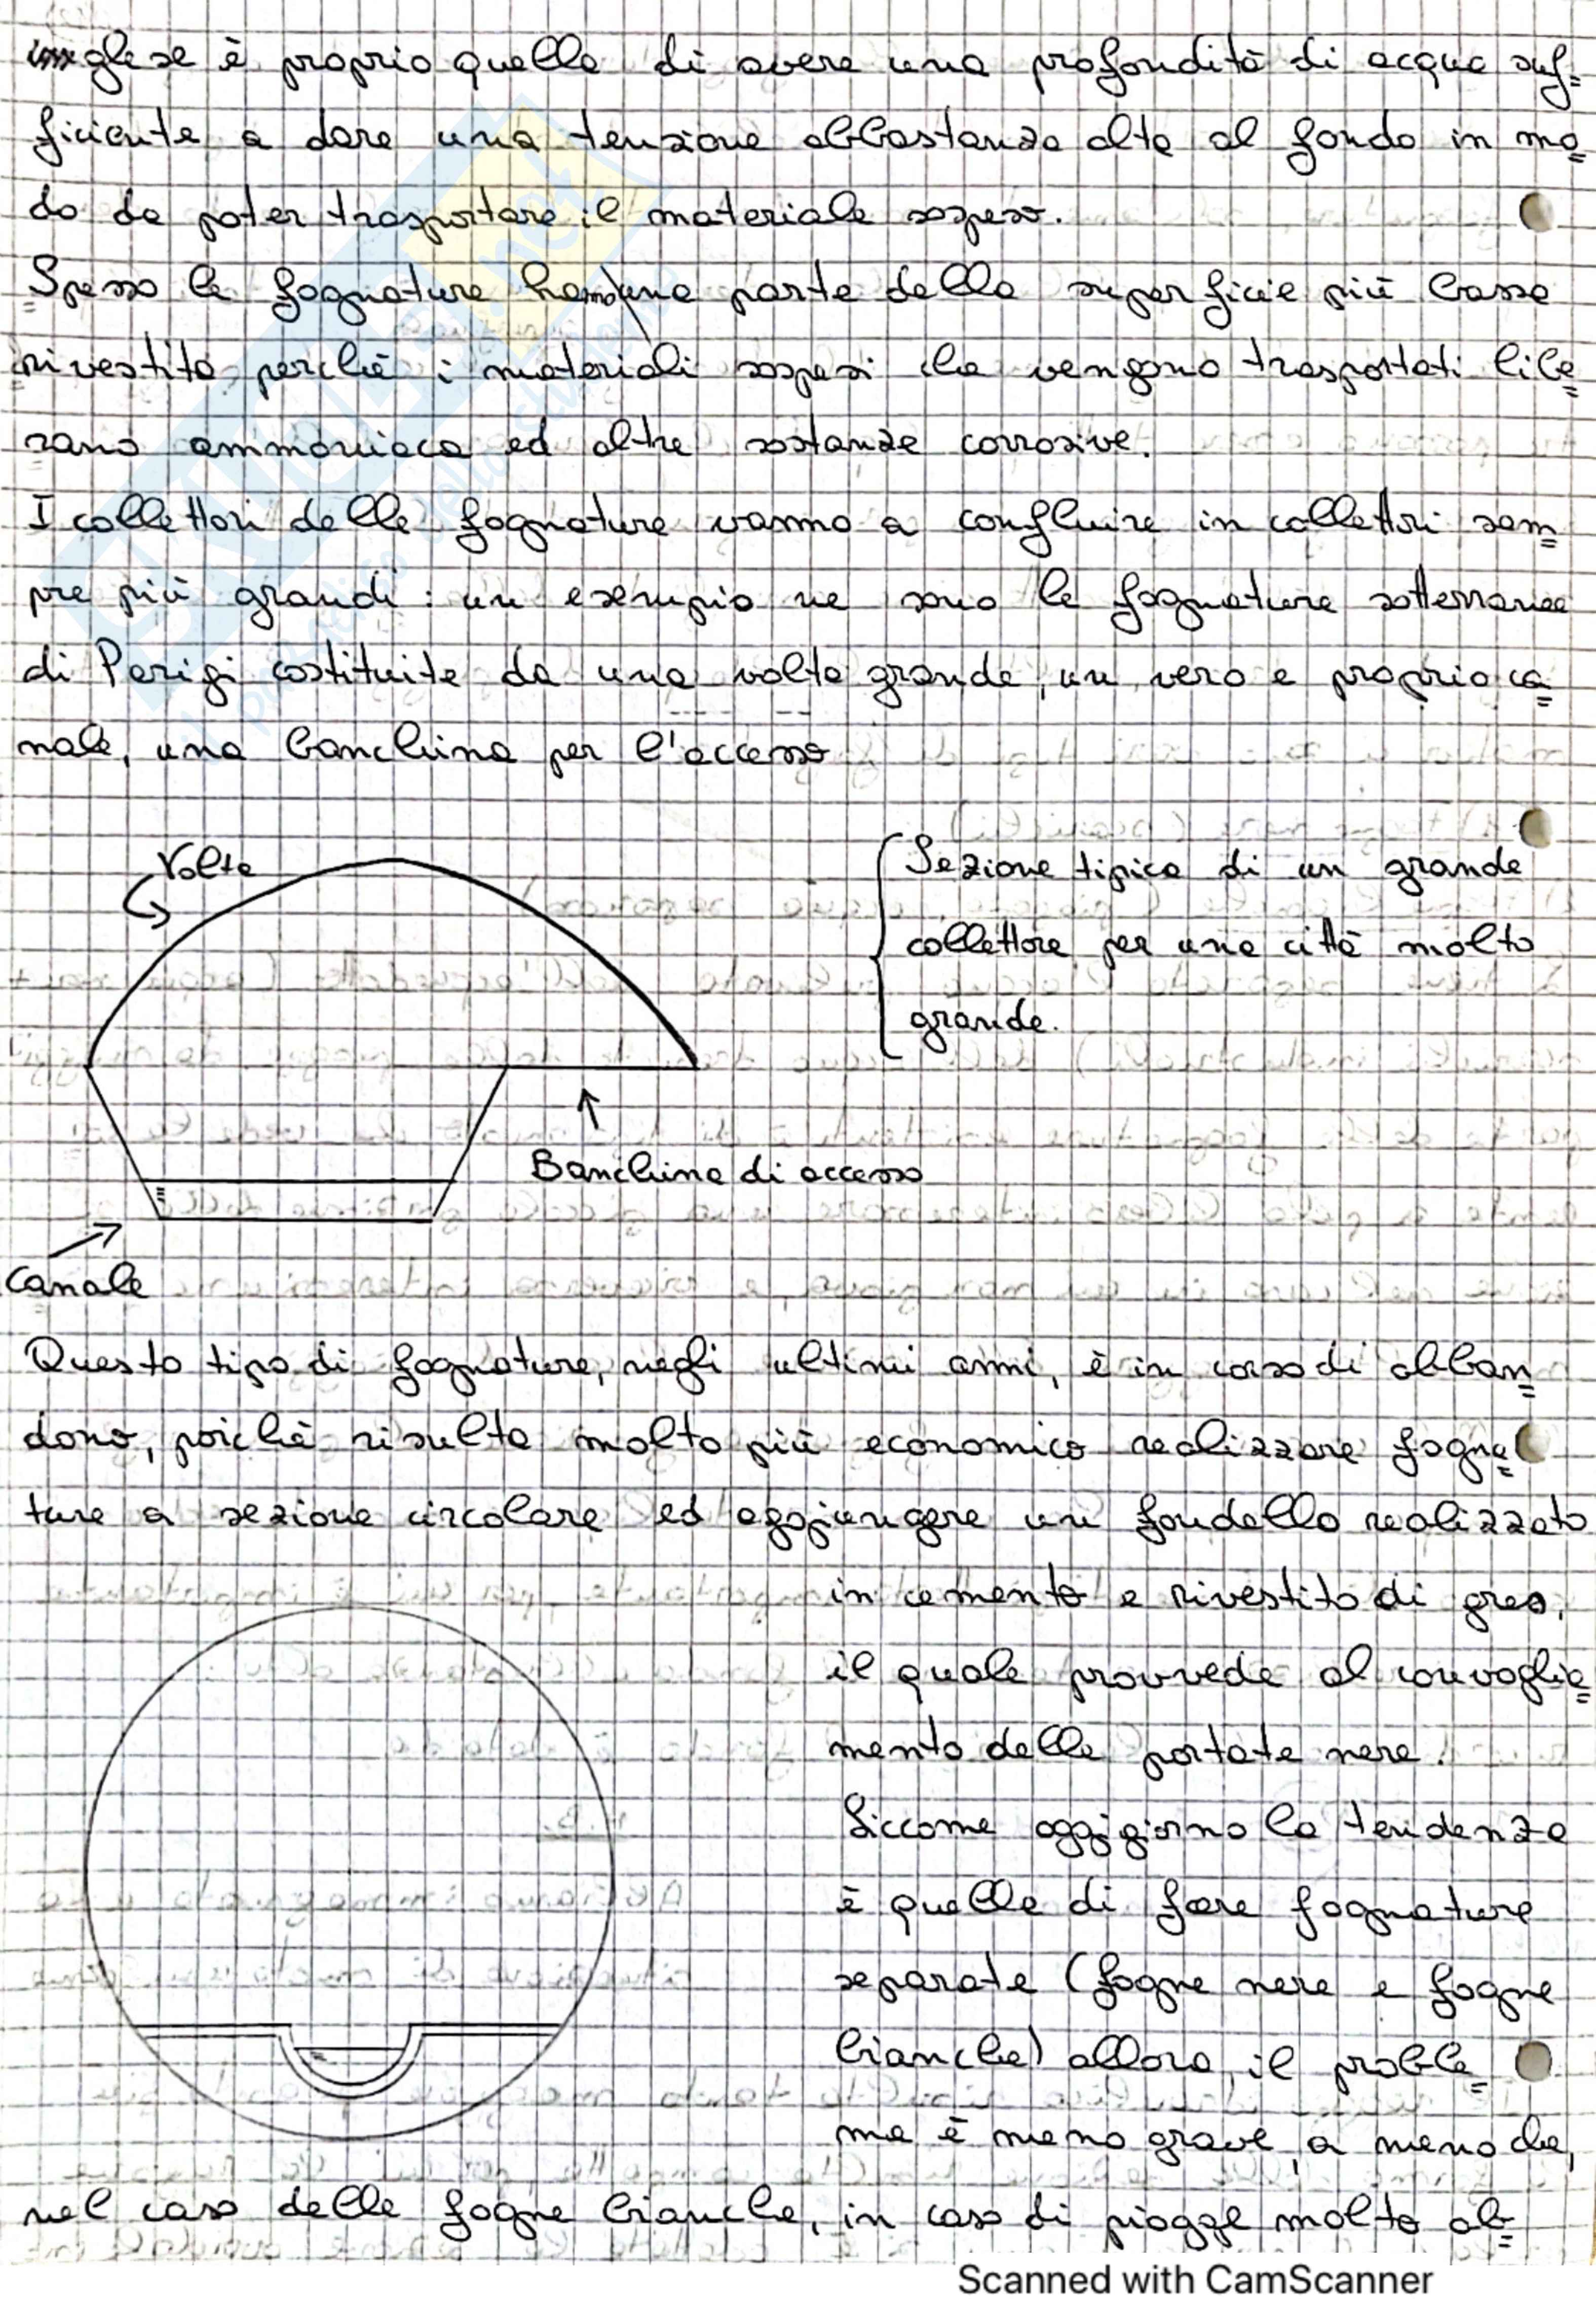 inglese è proprio quella di avere una profondità di acqua suf=
ficiente a dare una tensione abbastanza alta al fondo in mo=
do da poter trasportare il materiale sospeso.
Spesso le fognature hanno una parte della superficie più bassa
rivestita perchè i materiali sospesi che vengono trasportati libe=
rano ammoniaca ed altre sostanze corrosive.
I collettori delle fognature vanno a confluire in collettori sem=
pre più grandi: un esempio ne sono le fognature sotterranee
di Parigi costituite da una volta grande, un vero e proprio ca=
nale, una banchina per l'accesso
Volta
Sezione tipica di un grande
collettore per una città molto
grande.
Banchina di accesso
Canale
Questo tipo di fognature, negli ultimi anni, è in corso di abban=
dono, poichè risulta molto più economico realizzare fogna=
ture a sezione circolare ed aggiungere un fondello realizzato
in cemento e rivestito di gres,
il quale provvede al convoglia=
mento delle portate nere.
Siccome oggigiorno la tendenza
è quella di fare fognature
separate (fogne nere e fogne
bianche) allora il proble=
ma è meno grave, a meno che,
nel caso delle fogne bianche, in caso di piogge molto ab=
Scanned with CamScanner